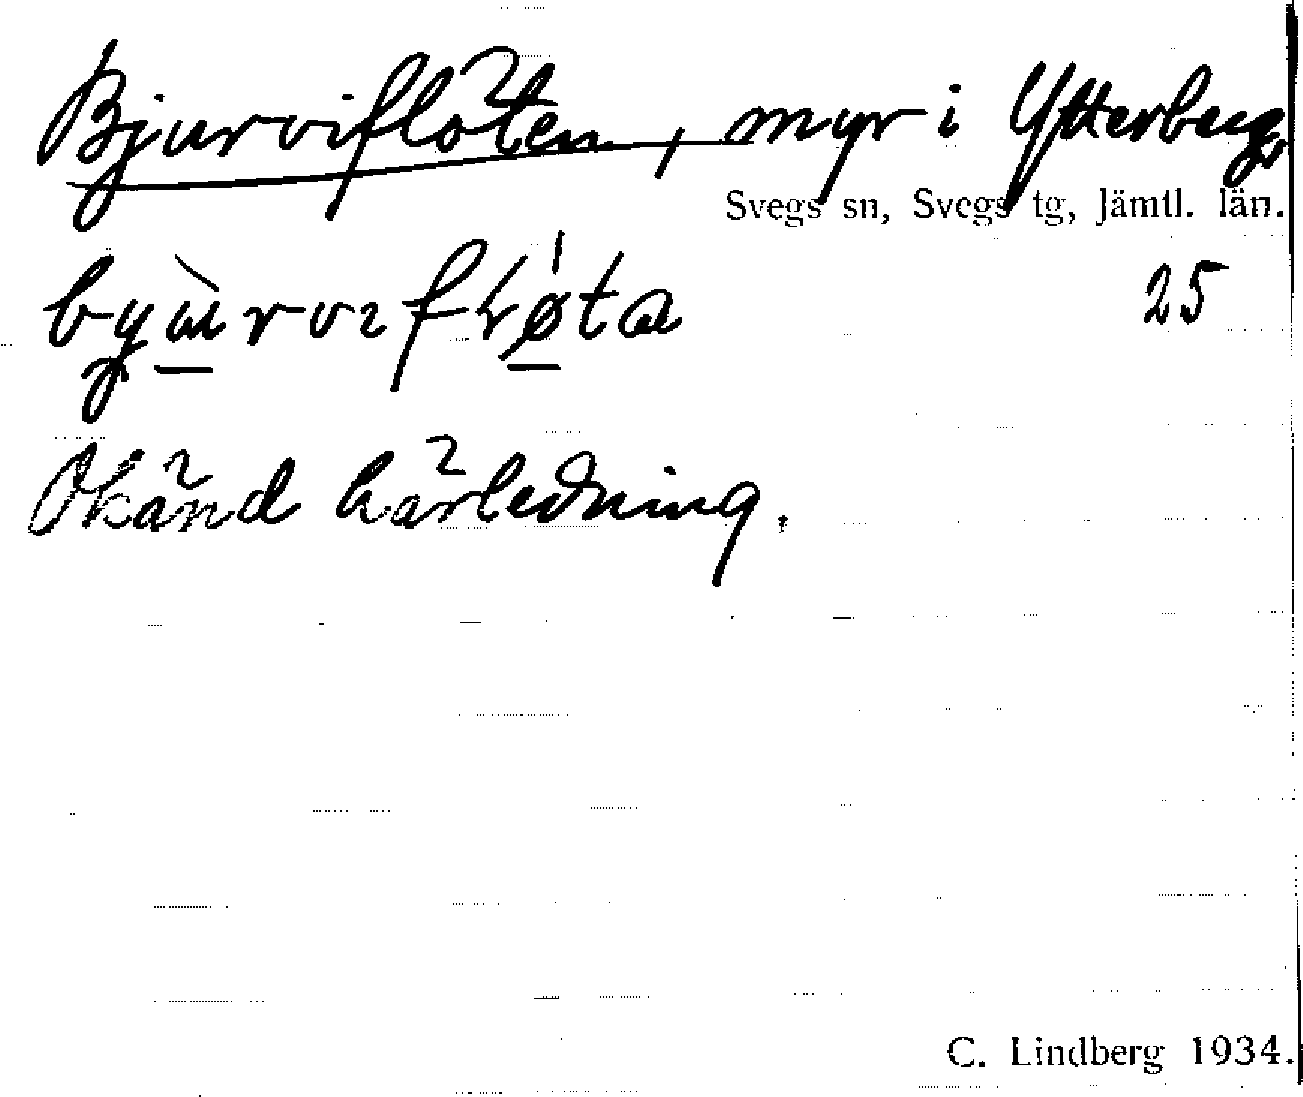 Bjurviflöten, myr i Ytterberg,
Svegs sn, Svegs tg, Jämtl. län.
25
Okänd härledning.
C. Lindberg 1934.